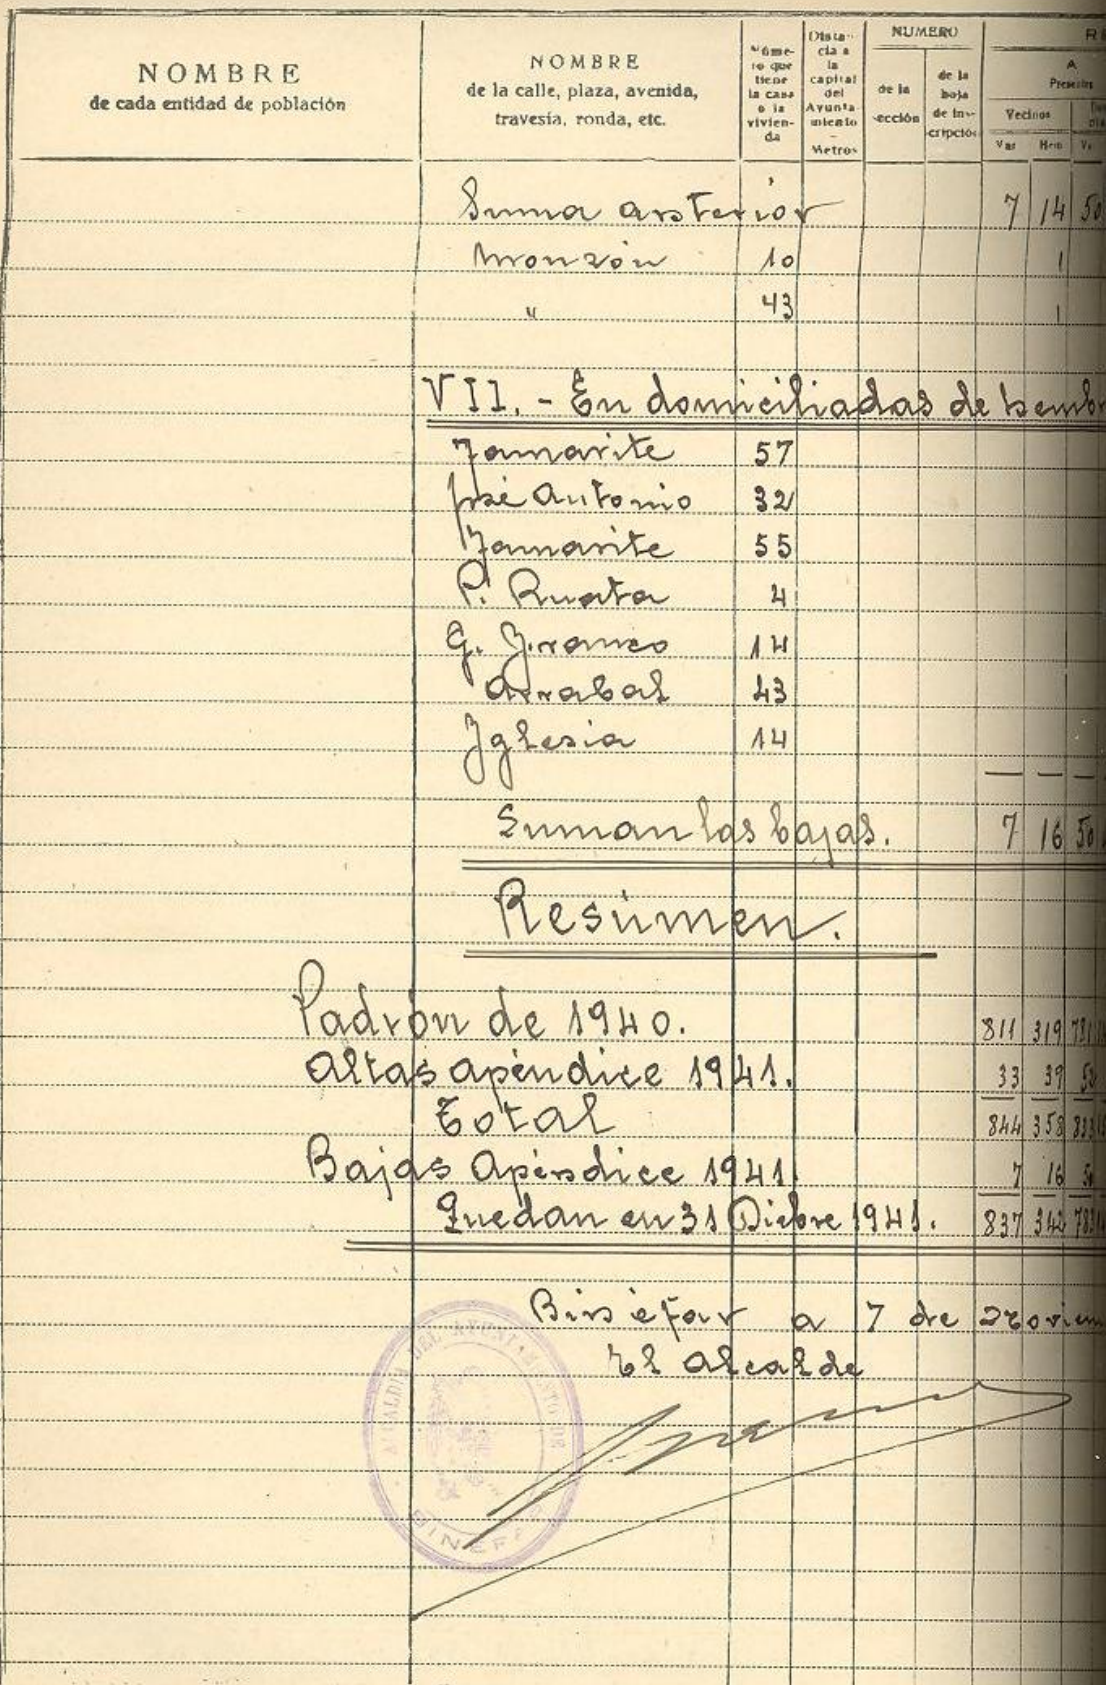 NOMBRE
de cada entidad de población
NOMBRE
de la calle, plaza, avenida,
travesía, ronda, etc.
Núme-
ro que
tiene
la casa
o la
vivien-
da
Distan-
cia a
la
capital
del
Ayunta-
miento
-
Metros
NUMERO
de la
sección
de la
hoja
de ins-
cripción
RE
A
Presentes
Vecinos
Var Hem Va
Suma anterior 7 14 50
Monzón 10 1
" 43 1
VII. - En domiciliadas de hemb
Tamarite 57
José Antonio 32
Tamarite 55
P. Ruata 4
G. Franco 14
Arrabal 43
Iglesia 14
Suman las bajas. 7 16 50
Resúmen.
Padrón de 1940. 811 319 781
Altas apéndice 1941. 33 39 52
Total 844 358 833
Bajas Apéndice 1941. 7 16 50
Quedan en 31 Dicbre 1941. 837 342 783
Binéfar a 7 de Noviem
El Alcalde
ALCALDIA DEL AYUNTAMIENTO DE
BINEFAR